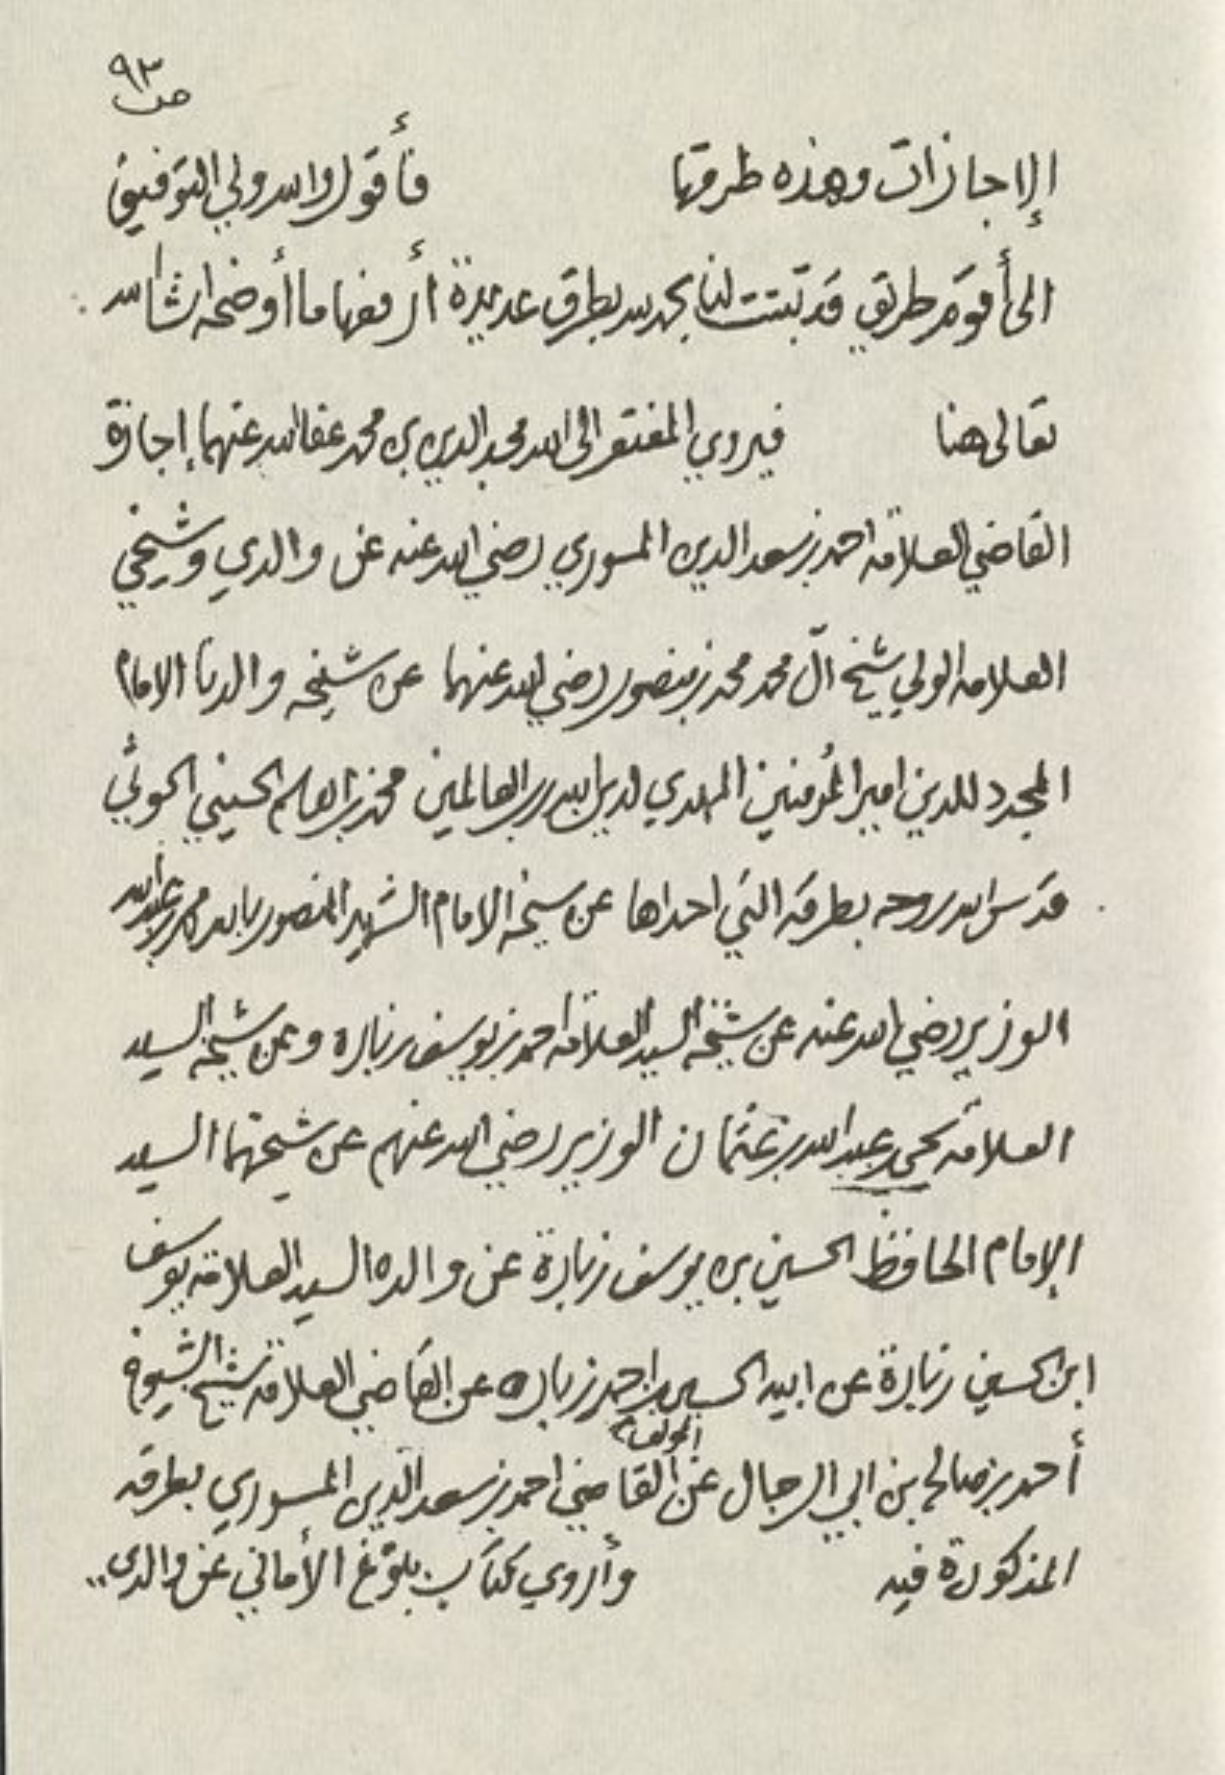 ٩٣
ص
الإجازات وهذه طرقها فأقول والله ولي التوفيق
الى أقوم طريق قد ثبتت لنا بحمد لله بطرق عديدة أرفعها ما أوضحه انشاالله
تعالى هنا فيروي المفتقر الى الله مجد الدين بن محمد عفا الله عنهما إجازة
القاضي العلامة احمد بن سعد الدين المسوري رضي الله عنه عن والدي وشيخي
العلامه الولي شيخ آل محمد محمد بن منصور رضي الله عنهما عن شيخه والدنا الامام
المجدد للدين امير المؤمنين المهدي لدين الله رب العالمين محمد بن القاسم الحسيني الحوثي
قدس الله روحه بطرقه التي احداها عن شيخه الامام الشهيد المنصور بالله محمد بن عبدالله
الوزير رضي الله عنه عن شيخه السيد العلامه احمد بن يوسف زباره وعن شيخه السيد
العلامة يحيى بن عبدالله بن عثمان الوزير رضي الله عنهم عن شيخهما السيد
الإمام الحافظ الحسين بن يوسف زبارة عن والده السيد العلامة يوسف
ابن الحسين زبارة عن ابيه الحسين بن احمد زباره عن القاضي العلامة شيخ الشيوخ
أحمد بن صالح بن ابي الرجال عن المؤلف القاضي احمد بن سعد الدين المسوري بطرقه
المذكورة فيه وأروي كتاب بلوغ الأماني عن والدي..